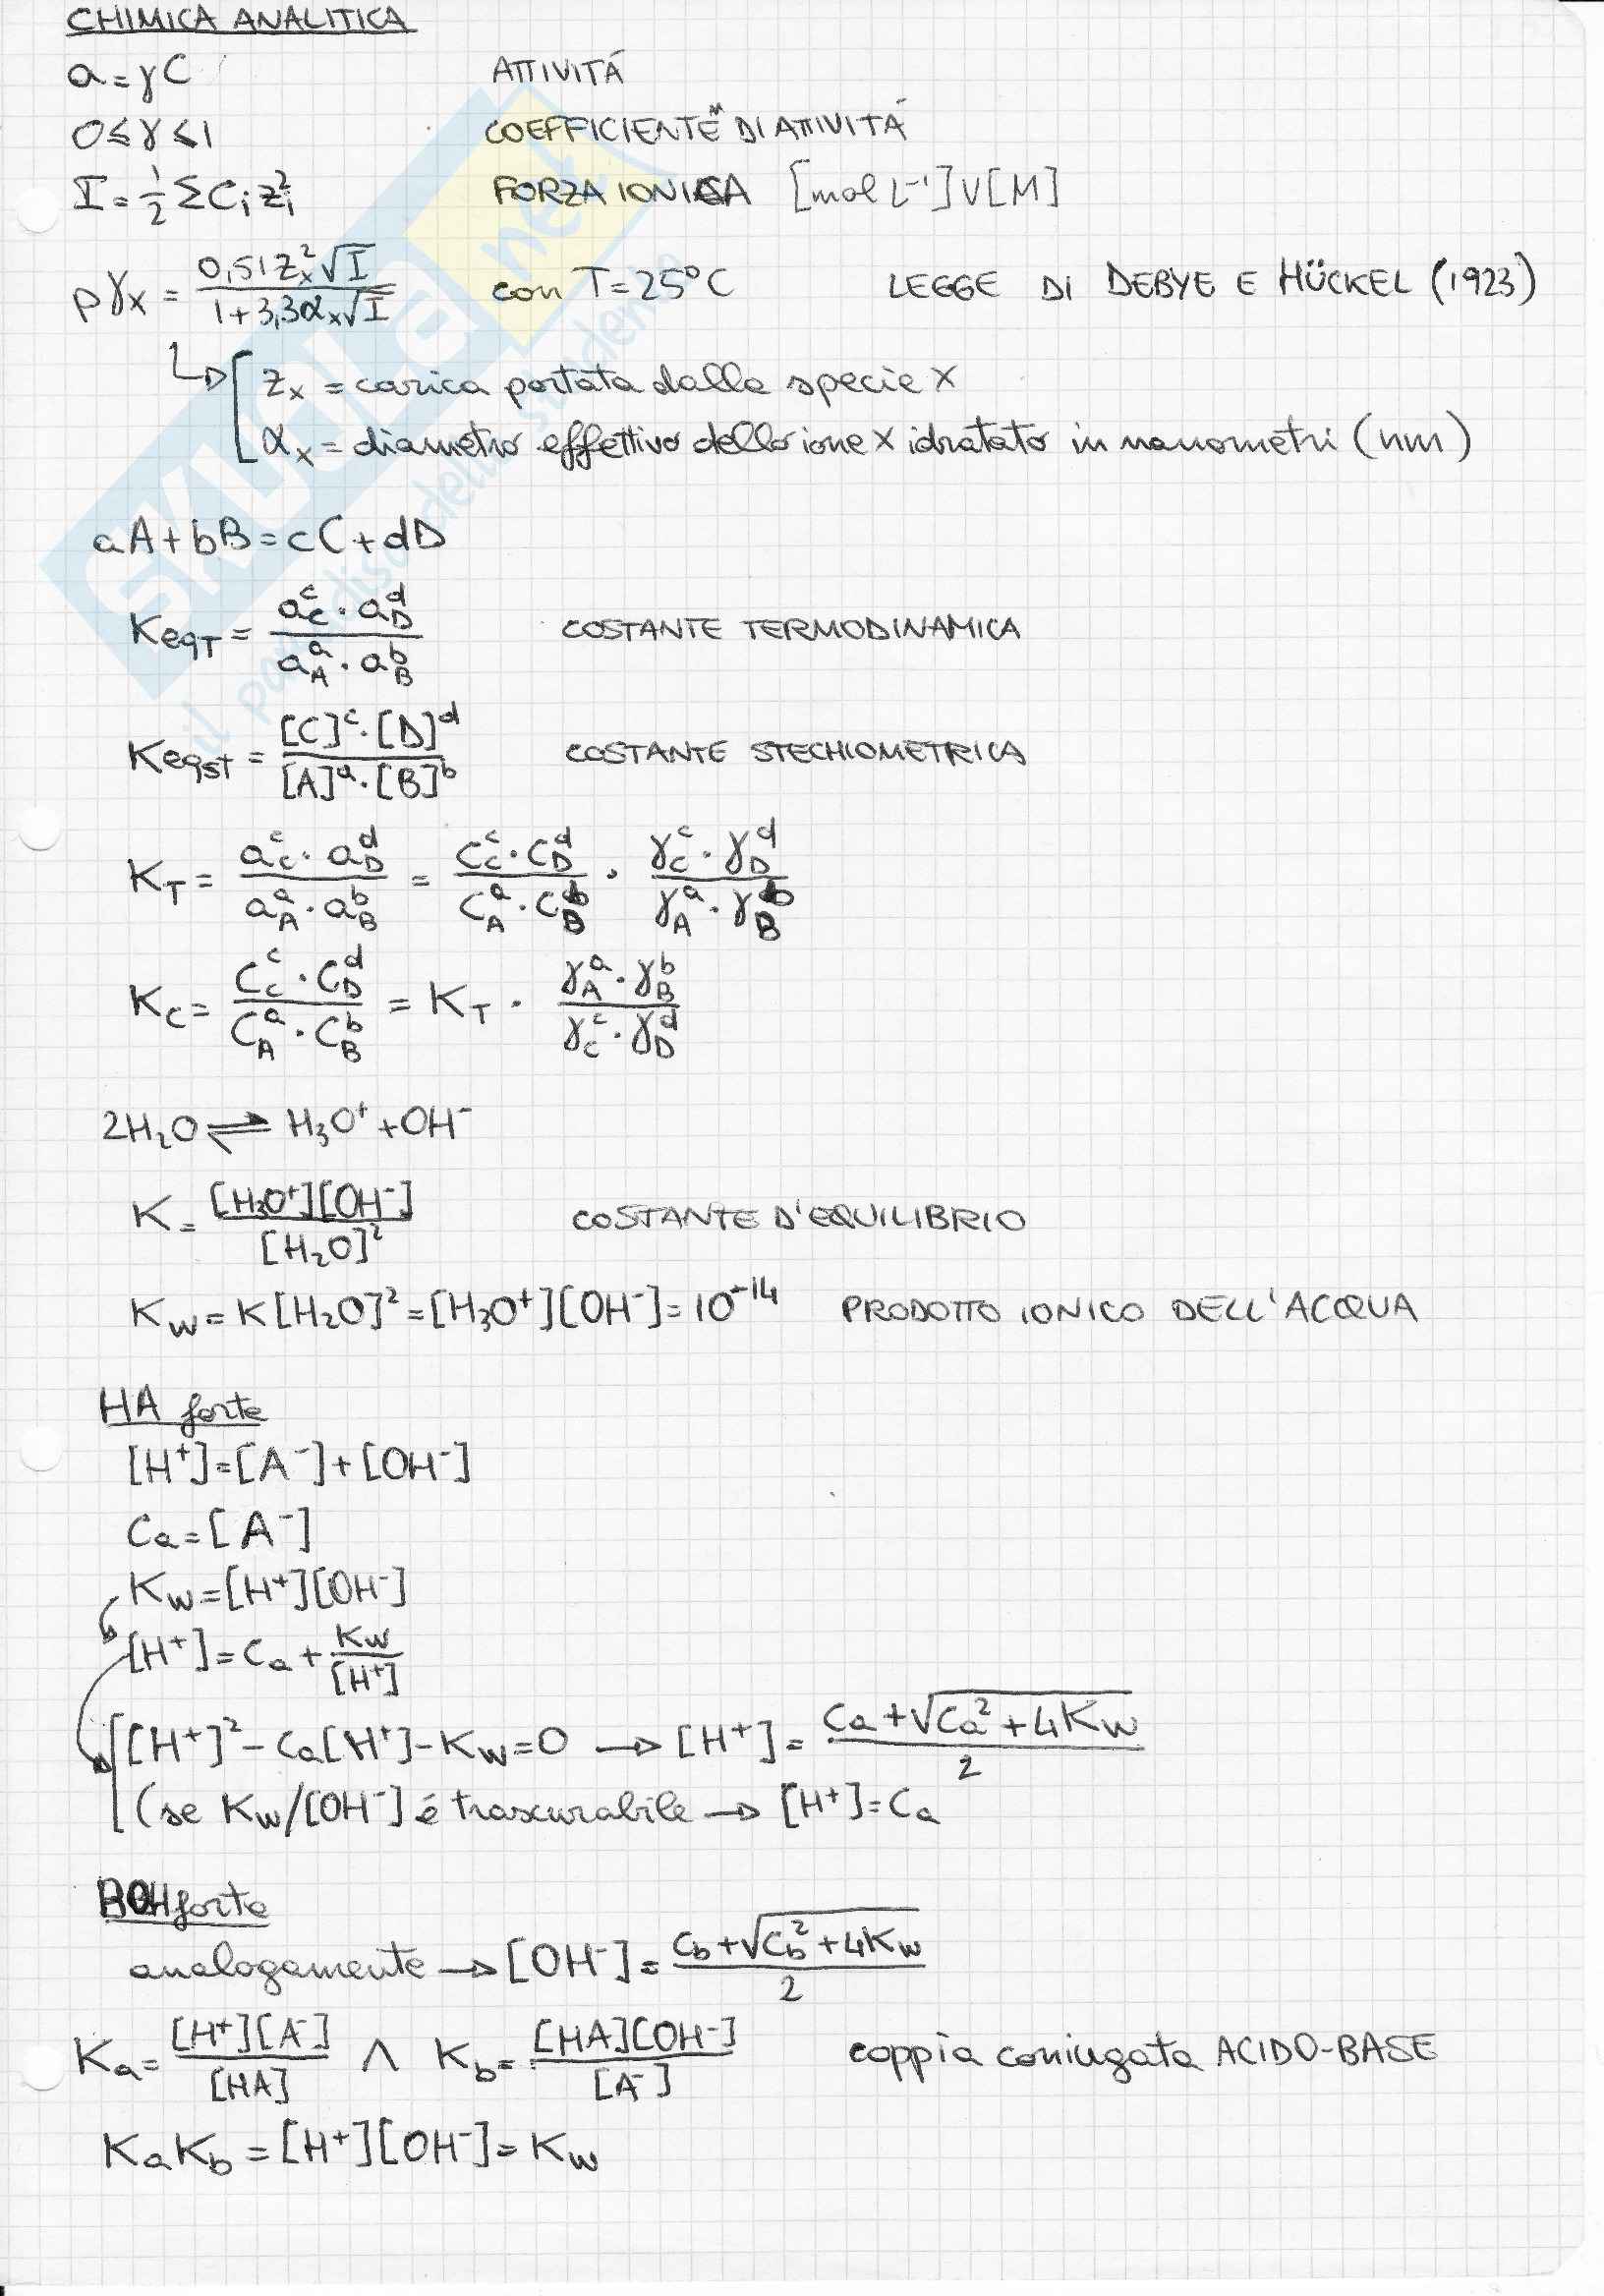 CHIMICA ANALITICA
a = γC ATTIVITÁ
0 ≤ γ ≤ 1 COEFFICIENTE DI ATTIVITÁ
I = 1/2 Σ Cᵢ zᵢ² FORZA IONICA [mol L⁻¹] V [M]
pγₓ = 0,51 zₓ² √I / (1 + 3,3 αₓ √I) con T = 25°C LEGGE DI DEBYE E HÜCKEL (1923)
zₓ = carica portata dalla specie X
αₓ = diametro effettivo dello ione X idratato in nanometri (nm)
aA + bB = cC + dD
K_eqT = a_C^c · a_D^d / a_A^a · a_B^b COSTANTE TERMODINAMICA
K_eqst = [C]^c · [D]^d / [A]^a · [B]^b COSTANTE STECHIOMETRICA
K_T = a_C^c · a_D^d / a_A^a · a_B^b = C_C^c · C_D^d / C_A^a · C_B^b · γ_C^c · γ_D^d / γ_A^a · γ_B^b
K_C = C_C^c · C_D^d / C_A^a · C_B^b = K_T · γ_A^a · γ_B^b / γ_C^c · γ_D^d
2H₂O ⇌ H₃O⁺ + OH⁻
K = [H₃O⁺][OH⁻] / [H₂O]² COSTANTE D'EQUILIBRIO
K_w = K[H₂O]² = [H₃O⁺][OH⁻] = 10⁻¹⁴ PRODOTTO IONICO DELL'ACQUA
HA forte
[H⁺] = [A⁻] + [OH⁻]
Ca = [A⁻]
K_w = [H⁺][OH⁻]
[H⁺] = Ca + K_w / [H⁺]
[H⁺]² - Ca[H⁺] - K_w = 0 → [H⁺] = (Ca + √(Ca² + 4K_w)) / 2
(se K_w/[OH⁻] é trascurabile → [H⁺] = Ca
BOH forte
analogamente → [OH⁻] = (C_b + √(C_b² + 4K_w)) / 2
Ka = [H⁺][A⁻] / [HA] ∧ K_b = [HA][OH⁻] / [A⁻] coppia coniugata ACIDO-BASE
Ka K_b = [H⁺][OH⁻] = K_w